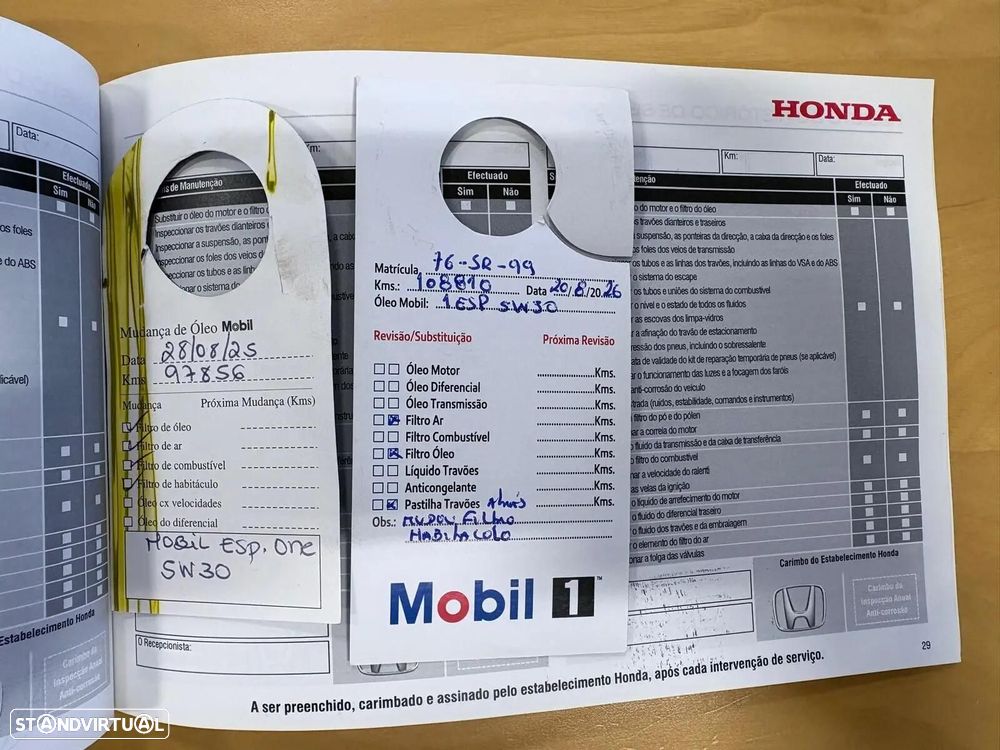 Data:
Efectuado
Sim
Não
os foles
e do ABS
licável)
Estabelecimento Honda
Carimbo da
Inspecção Anual
Anti-corrosão
HONDA
Km:
Km:
Data:
ns de Manutenção
Substituir o óleo do motor e o filtro
Inspeccionar os travões dianteiros
Inspeccionar a suspensão, as ponte
Inspeccionar os foles dos veios de
speccionar os tubos e as linhas
onar o sistema do
Mudança de Óleo Mobil
Data 28/08/25
Kms 97856
Mudança Próxima Mudança (Kms)
Filtro de óleo
Filtro de ar
Filtro de combustível
Filtro de habitáculo
Óleo cx velocidades
Óleo do diferencial
MOBIL ESP. ONE
5W30
O Recepcionista:
Efectuado
Sim
Não
Matrícula 76-SR-99
Kms.: 108810 Data 20/8/2026
Óleo Mobil: 1 ESP 5W30
Revisão/Substituição Próxima Revisão
Óleo Motor Kms.
Óleo Diferencial Kms.
Óleo Transmissão Kms.
Filtro Ar Kms.
Filtro Combustível Kms.
Filtro Óleo Kms.
Líquido Travões Kms.
Anticongelante Kms.
Pastilha Travões Atrás Kms.
Obs.: Mudou Filtro
Habitacolo
Mobil 1™
nutenção
Efectuado
Sim
Não
do motor e o filtro do óleo
os travões dianteiros e traseiros
suspensão, as ponteiras da direcção, a caixa da direcção e os foles
os foles dos veios de transmissão
os tubos e as linhas dos travões, incluindo as linhas do VSA e do ABS
o sistema do escape
os tubos e uniões do sistema do combustível
o nível e o estado de todos os fluidos
as escovas dos limpa-vidros
a afinação do travão de estacionamento
ressão dos pneus, incluindo o sobressalente
ata de validade do kit de reparação temporária de pneus (se aplicável)
ar o funcionamento das luzes e a focagem dos faróis
anti-corrosão do veículo
strada (ruídos, estabilidade, comandos e instrumentos)
o filtro do pó e do pólen
nar a correia do motor
o fluido da transmissão e da caixa de transferência
o filtro do combustível
nar a velocidade do ralenti
as velas da ignição
o líquido de arrefecimento do motor
o fluido do diferencial traseiro
o fluido dos travões e da embraiagem
r o elemento do filtro do ar
onar a folga das válvulas
Carimbo do Estabelecimento Honda
Carimbo da
Inspecção Anual
Anti-corrosão
29
A ser preenchido, carimbado e assinado pelo estabelecimento Honda, após cada intervenção de serviço.
STANDVIRTUAL